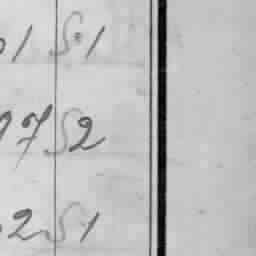 1 S 1
7 S 2
2 S 1